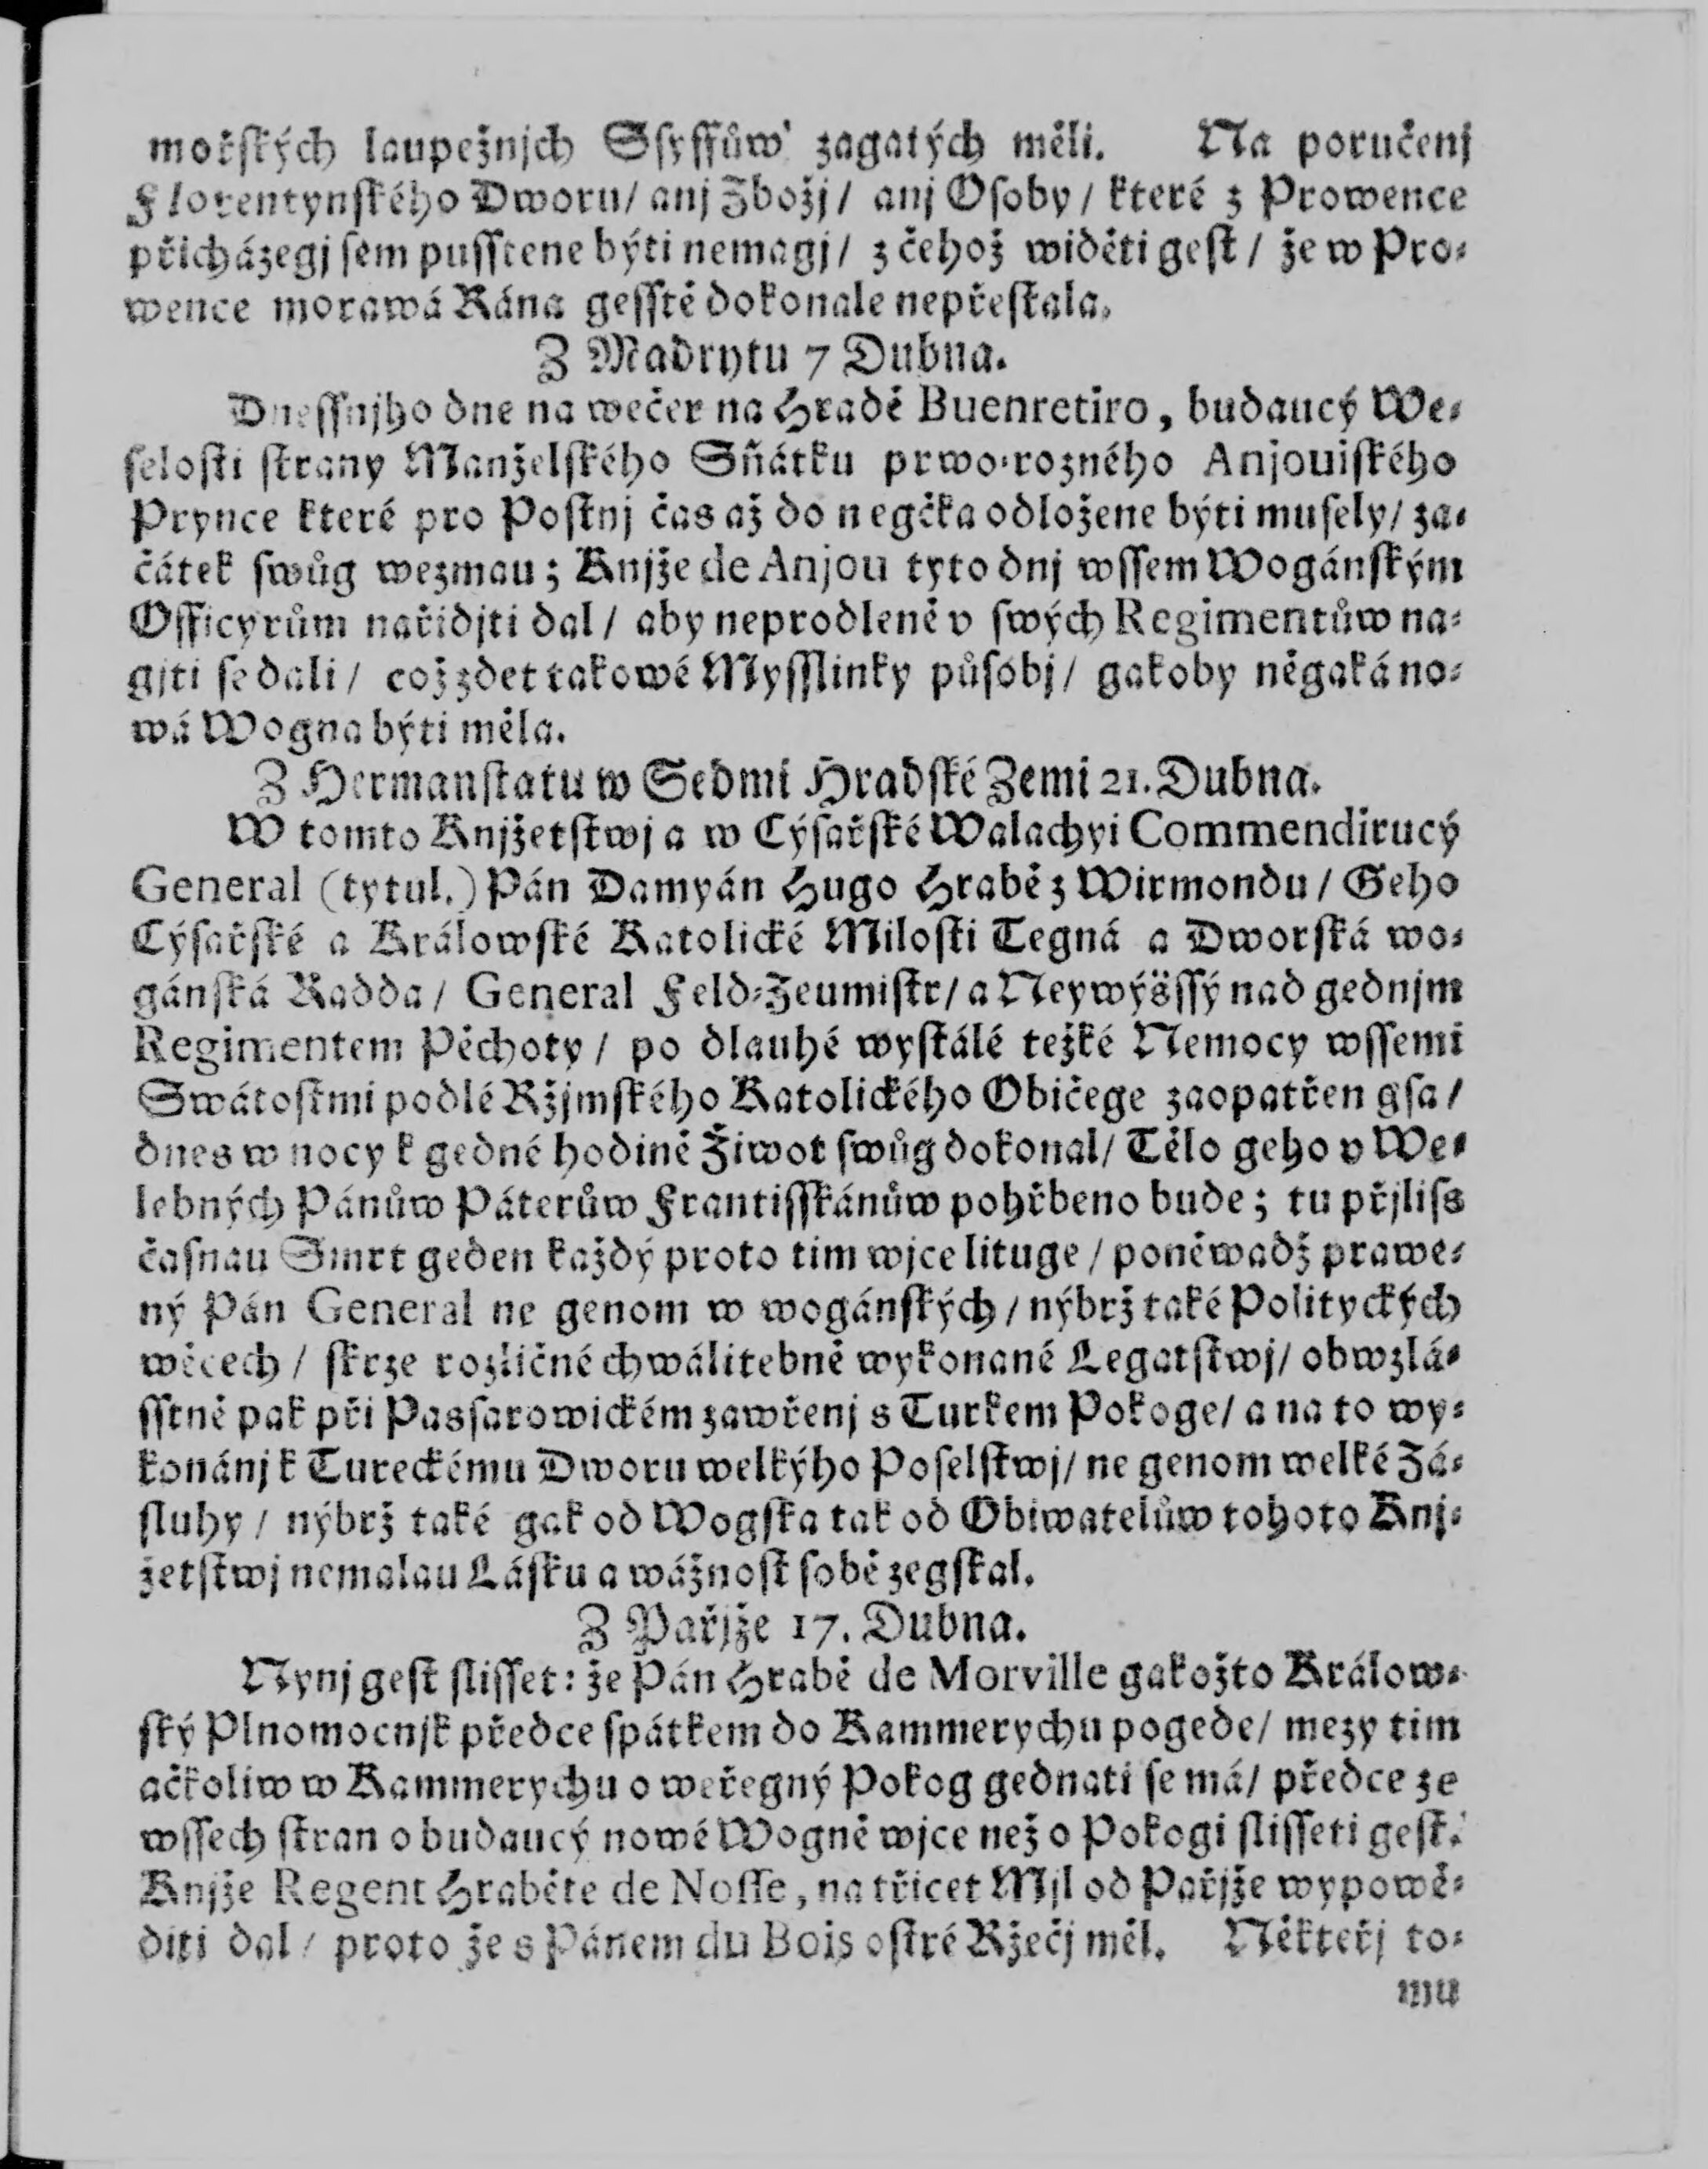 mořſkých laupežnjch Sſyffůw' zagatých měli. Na poručenj
Florentynſkého Dworu/ anj Zbožj/ anj Oſoby/ které z Prowence
přicházegj ſem puſſtene býti nemagj/ z čehož widěti geſt/ že w Pro⸗
wence morawá Rána geſſtě dokonale nepřeſtala.
Z Madrytu 7 Dubna.
Dneſſnjho dne na wečer na Hradě Buenretiro, budaucý We⸗
ſeloſti ſtrany Manželſkého Sňátku prwo⸗rozného Anjouiſkého
Prynce které pro Poſtnj čas až do negčka odložene býti muſely/ za⸗
čátek ſwůg wezmau; Knjže de Anjou tyto dnj wſſem Wogánſkým
Officyrům nařidjti dal/ aby neprodleně v ſwých Regimentůw na⸗
gjti ſe dali/ což zdet takowé Myſſlinky půſobj/ gakoby něgaká no⸗
wá Wogna býti měla.
Z Hermanſtatu w Sedmi Hradſké Zemi 21. Dubna.
W tomto Knjžetſtwj a w Cýſařſké Walachyi Commendirucý
General (tytul.) Pán Damyán Hugo Hrabě z Wirmondu/ Geho
Cýſařſké a Králowſké Katolické Miloſti Tegná a Dworſká wo⸗
gánſká Radda/ General Feld⸗Zeumiſtr/ a Neywýšſſý nad gednjm
Regimentem Pěchoty/ po dlauhé wyſtálé težké Nemocy wſſemi
Swátoſtmi podlé Ržjmſkého Katolického Običege zaopatřen gſa/
dnes w nocy k gedné hodině Život ſwůg dokonal/ Tělo geho v We⸗
lebných Pánůw Páterůw Frantiſſkánůw pohřbeno bude; tu přjliſs
čaſnau Smrt geden každý proto tim wjce lituge/ poněwadž prawe⸗
ný Pán General ne genom w wogánſkých/ nýbrž také Polityckých
wěcech/ ſkrze rozličné chwálitebně wykonané Legatſtwj/ obwzlá⸗
ſſtně pak při Pasſarowickém zawřenj s Turkem Pokoge/ a na to wy⸗
konánj k Tureckému Dworu welkýho Poſelſtwj/ ne genom welké Zá⸗
ſluhy/ nýbrž také gak od Wogſka tak od Obiwatelůw tohoto Knj⸗
žetſtwj nemalau Láſku a wážnoſt ſobě zegſkal.
Z Pařjže 17. Dubna.
Nynj geſt ſliſſet: že Pán Hrabě de Morville gakožto Králow⸗
ſký Plnomocnjk předce ſpátkem do Kammerychu pogede/ mezy tim
ačkoliw w Kammerychu o weřegný Pokog gednati ſe má/ předce ze
wſſech ſtran o budaucý nowé Wogně wjce než o Pokogi ſliſſeti geſt.
Knjže Regent Hraběte de Noſſe, na třicet Mjl od Pařjže wypowě⸗
diti dal/ proto že s Pánem du Bois oſtré Ržečj měl. Někteřj to⸗
mu